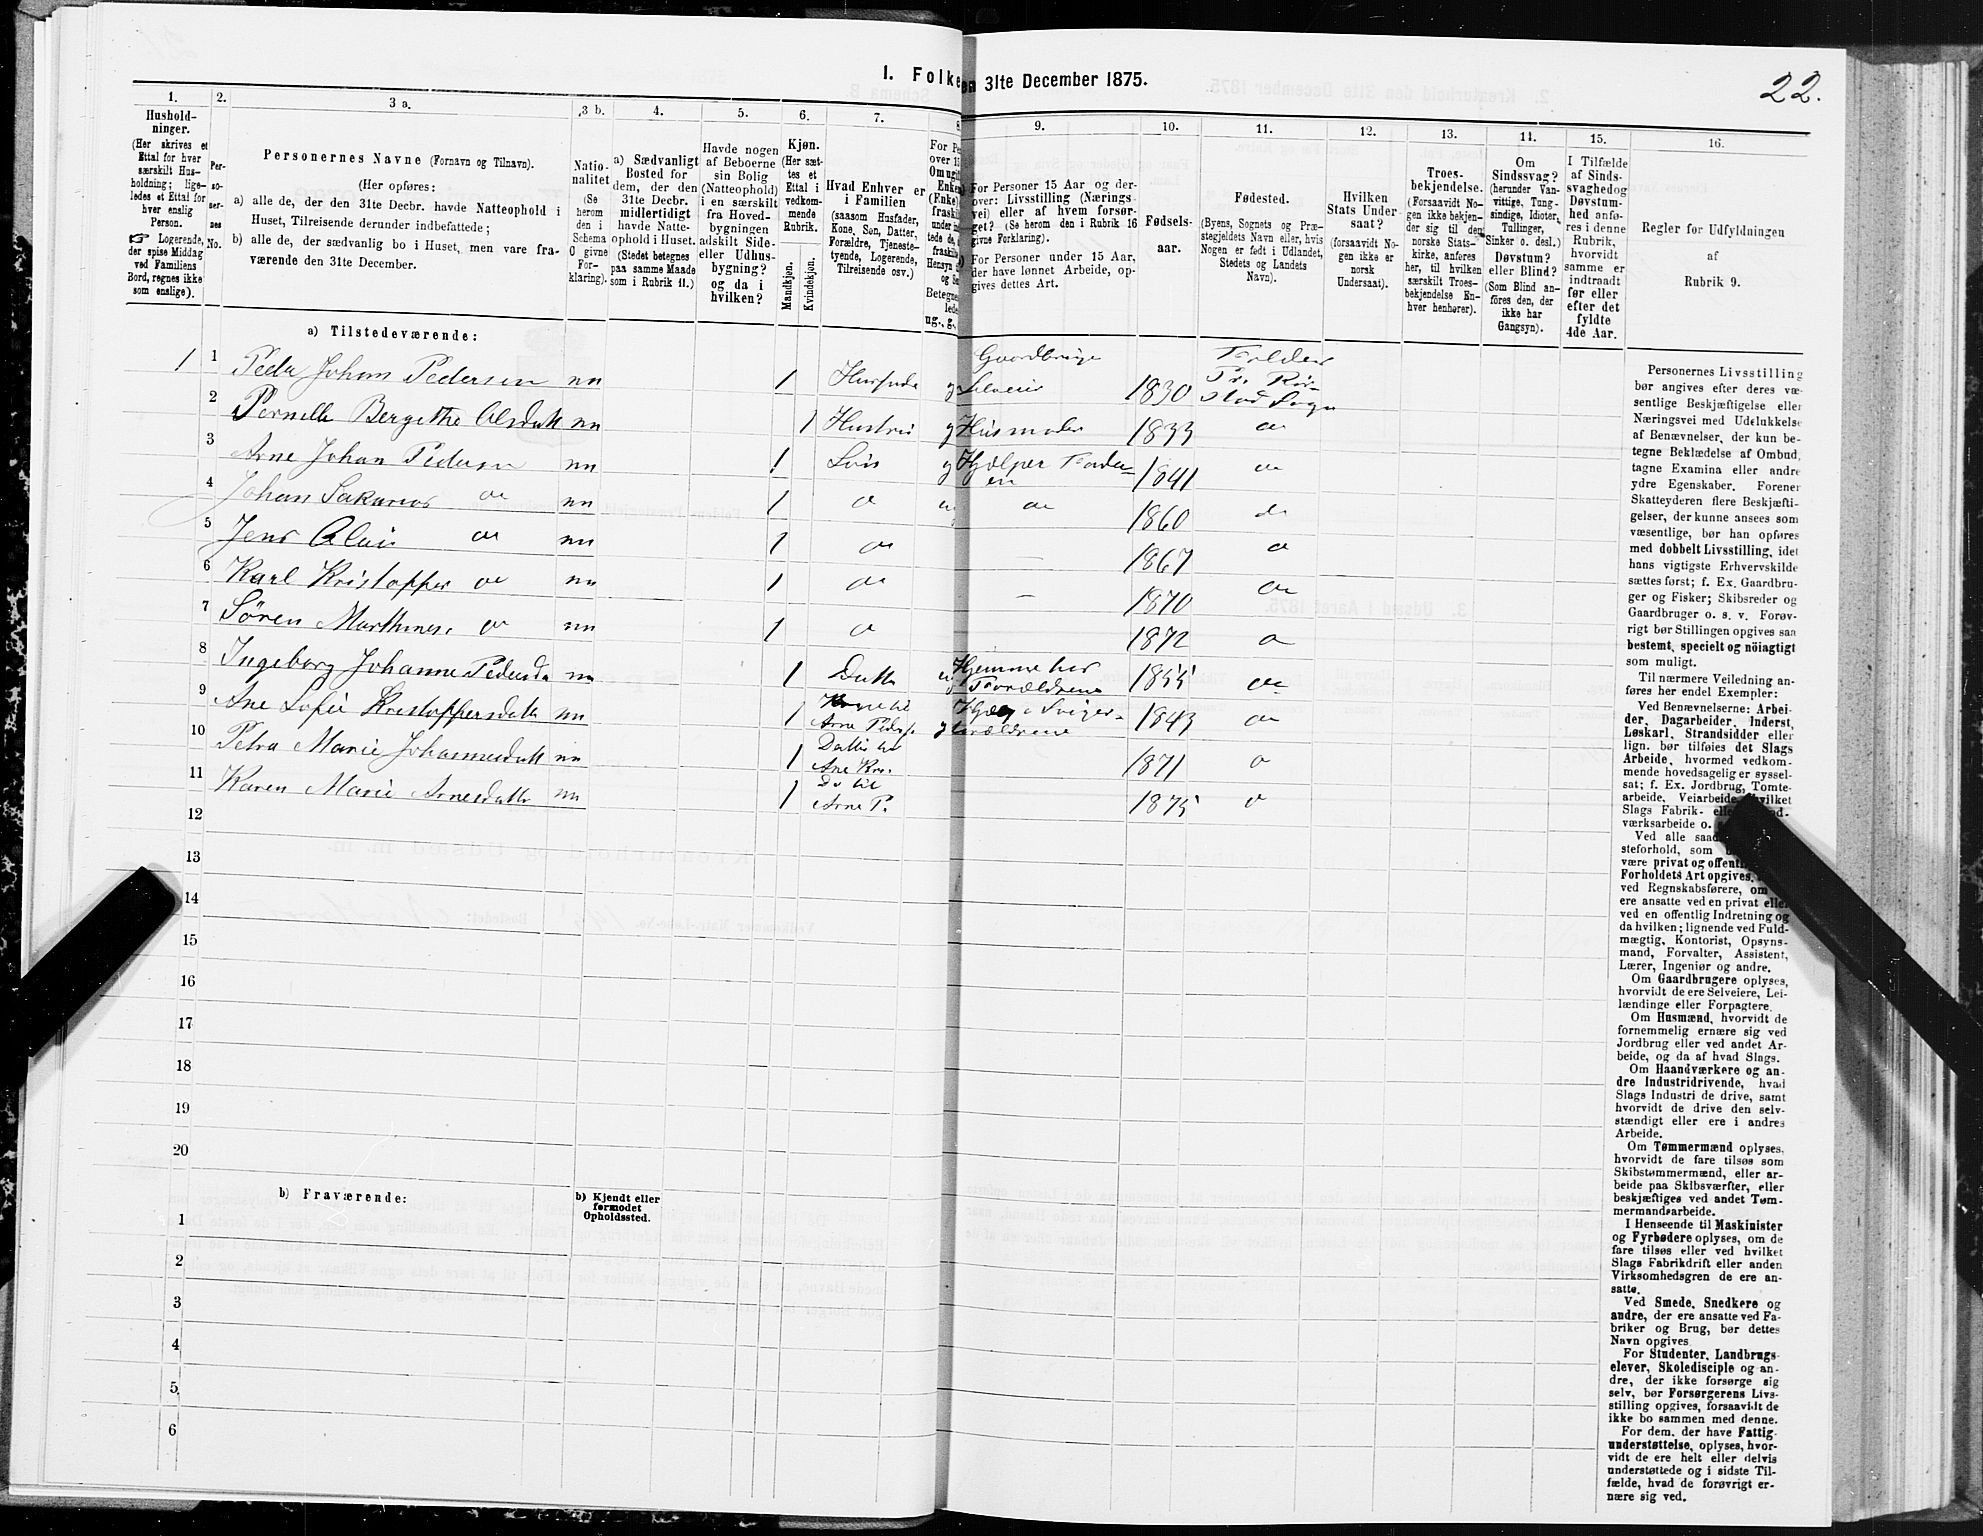 22.
I. Folke en 31te December 1875.
1. 2. 3 a. 3 b. 4. 5. 6. 7. 8 9. 10. 11. 12. 13. 14. 15. 16.
Hushold-
ninger.
(Her skrives et
Ettal for hver
særskilt Hus-
holdning; lige-
ledes et Ettal for
hver enslig
Person.
☞ Logerende,
der spise Middag
ved Familiens
Bord, regnes ikke
som enslige).
Per-
so-
ner-
nes
No.
Personernes Navne (Fornavn og Tilnavn).
(Her opføres:
a) alle de, der den 31te Decbr. havde Natteophold i
Huset, Tilreisende derunder indbefattede;
b) alle de, der sædvanlig bo i Huset, men vare fra-
værende den 31te December.
Natio-
nalitet
(Se
herom
den i
Schema
O givne
For-
klaring).
a) Sædvanligt
Bosted for
dem, der den
31te Decbr.
midlertidigt
havde Natte-
ophold i Huset.
(Stedet betegnes
paa samme Maade
som i Rubrik 11.)
Havde nogen
af Beboerne
sin Bolig
(Natteophold)
i en særskilt
fra Hoved-
bygningen
adskilt Side-
eller Udhus-
bygning?
og da i
hvilken?
Kjøn.
(Her sæt-
tes et
Ettal i
vedkom-
mende
Rubrik.
Mandkjøn.
Kvindekjøn.
Hvad Enhver er
i Familien
(saasom Husfader,
Kone, Søn, Datter,
Forældre, Tjeneste-
tyende, Logerende,
Tilreisende osv.)
For Pe
over 15
Om ugift
Enke
(Enke)
fraskil
under in
tede de,
fraskilt
Hensyn
og Se
Betegne
lede
ug., g.,
For Personer 15 Aar og der-
over: Livsstilling (Nærings-
vei) eller af hvem forsør-
get? (Se herom den i Rubrik 16
givne Forklaring).
For Personer under 15 Aar,
der have lønnet Arbeide, op-
gives dettes Art.
Fødsels-
aar.
Fødested.
(Byens, Sognets og Præ-
stegjeldets Navn eller, hvis
Nogen er født i Udlandet,
Stedets og Landets
Navn).
Hvilken
Stats Under-
saat?
(forsaavidt No-
gen ikke er
norsk
Undersaat).
Troes-
bekjendelse.
(Forsaavidt No-
gen ikke bekjen-
der sig til den
norske Stats-
kirke, anføres
her, til hvilken
særskilt Troes-
bekjendelse En-
hver henhører).
Om
Sindssvag?
(herunder Van-
vittige, Tung-
sindige, Idioter,
Tullinger,
Sinker o. desl.)
Døvstum?
eller Blind?
(Som Blind an-
føres den, der
ikke har
Gangsyn).
I Tilfælde
af Sinds-
svaghedog
Døvstum-
hed anfø-
res i denne
Rubrik,
hvorvidt
samme er
indtraadt
før eller
efter det
fyldte
4de Aar.
Regler for Udfyldningen
af
Rubrik 9.
a) Tilstedeværende:
1 1 Peder Johan Pedersen nn 1 Husfader g Gaardbruger Selveier 1830 Folden Pr. Rörstad Sogn
2 Pernille Bergethe Olsdatt nn 1 Hustru g Husmoder 1833
3 Arne Johan Pedersen nn 1 Søn g Hjælper Faderen 1841
4 Johan Sakarias nn 1 1860
5 Jens nn 1 - 1867
6 Karl Kristoffer nn 1 - 1870
7 Sören nn 1 1872
8 Ingeborg Johanne Pedersda nn 1 Datter Hjemme hos Forældrene 1855
9 Ane Sofie Kristoffersdatt nn 1 Kone til Arne Peders. g 1843
10 Petra Marie Johannesdatt nn 1 1871
11 Karen Marie Arnesdatt nn 1 Do til Arne P. 1875
12
13
14
15
16
17
18
19
20
b) Fraværende:
b) Kjendt eller
formodet
Opholdssted.
1
2
3
4
5
6
Personernes Livsstilling
bør angives efter deres væ-
sentlige Beskjæftigelse eller
Næringsvei med Udelukkelse
af Benævnelser, der kun be-
tegne Beklædelse af Ombud,
tagne Examina eller andre
ydre Egenskaber. Forener
Skatteyderen flere Beskjæfti-
gelser, der kunne ansees som
væsentlige, bør han opføres
med dobbelt Livsstilling, idet
hans vigtigste Erhvervskilde
sættes først; f. Ex. Gaardbru-
ger og Fisker; Skibsreder og
Gaardbruger o. s. v. Forøv-
rigt bør Stillingen opgives saa
bestemt, specielt og nöiagtigt
som muligt.
Til nærmere Veiledning an-
føres her endel Exempler:
Ved Benævnelserne: Arbei-
der, Dagarbeider, Inderst,
Løskarl, Strandsidder eller
lign. bør tilføies det Slags
Arbeide, hvormed vedkom-
mende hovedsagelig er syssel-
sat; f. Ex. Jordbrug, Tomte-
arbeide, Veiarbeide, hvilket
Slags Fabrik-
værksarbeide o.
Ved alle
steforhold, som
være privat og
Forholdets Art opgives,
ved Regnskabsførere, om
ere ansatte ved en privat eller
ved en offentlig Indretning og
da hvilken; lignende ved Fuld-
mægtig, Kontorist, Opsyns-
mand, Forvalter, Assistent,
Lærer, Ingeniør og andre.
Om Gaardbrugere oplyses,
hvorvidt de ere Selveiere, Lei-
lændinge eller Forpagtere.
Om Husmænd, hvorvidt de
fornemmelig ernære sig ved
Jordbrug eller ved andet Ar-
beide, og da af hvad Slags.
Om Haandværkere og an-
dre Industridrivende, hvad
Slags Industri de drive, samt
hvorvidt de drive den selv-
stændigt eller ere i andres
Arbeide.
Om Tømmermænd oplyses,
hvorvidt de fare tilsøs som
Skibstømmermænd, eller ar-
beide paa Skibsværfter, eller
beskjæftiges ved andet Tøm-
mermandsarbeide.
I Henseende til Maskinister
og Fyrbødere oplyses, om de
fare tilsøs eller ved hvilket
Slags Fabrikdrift eller anden
Virksomhedsgren de ere an-
satte.
Ved Smede, Snedkere og
andre, der ere ansatte ved Fa-
briker og Brug, bør dettes
Navn opgives
For Studenter, Landbrugs-
elever, Skoledisciple og an-
dre, der ikke forsørge sig
selv, bør Forsørgerens Livs-
stilling opgives, forsaavidt de
ikke bo sammen med denne.
For dem, der have Fattig-
understøttelse, oplyses, hvor-
vidt de ere helt eller delvis
understøttede og i sidste Til-
fælde, hvad de forøvrigt er-
nære sig ved.